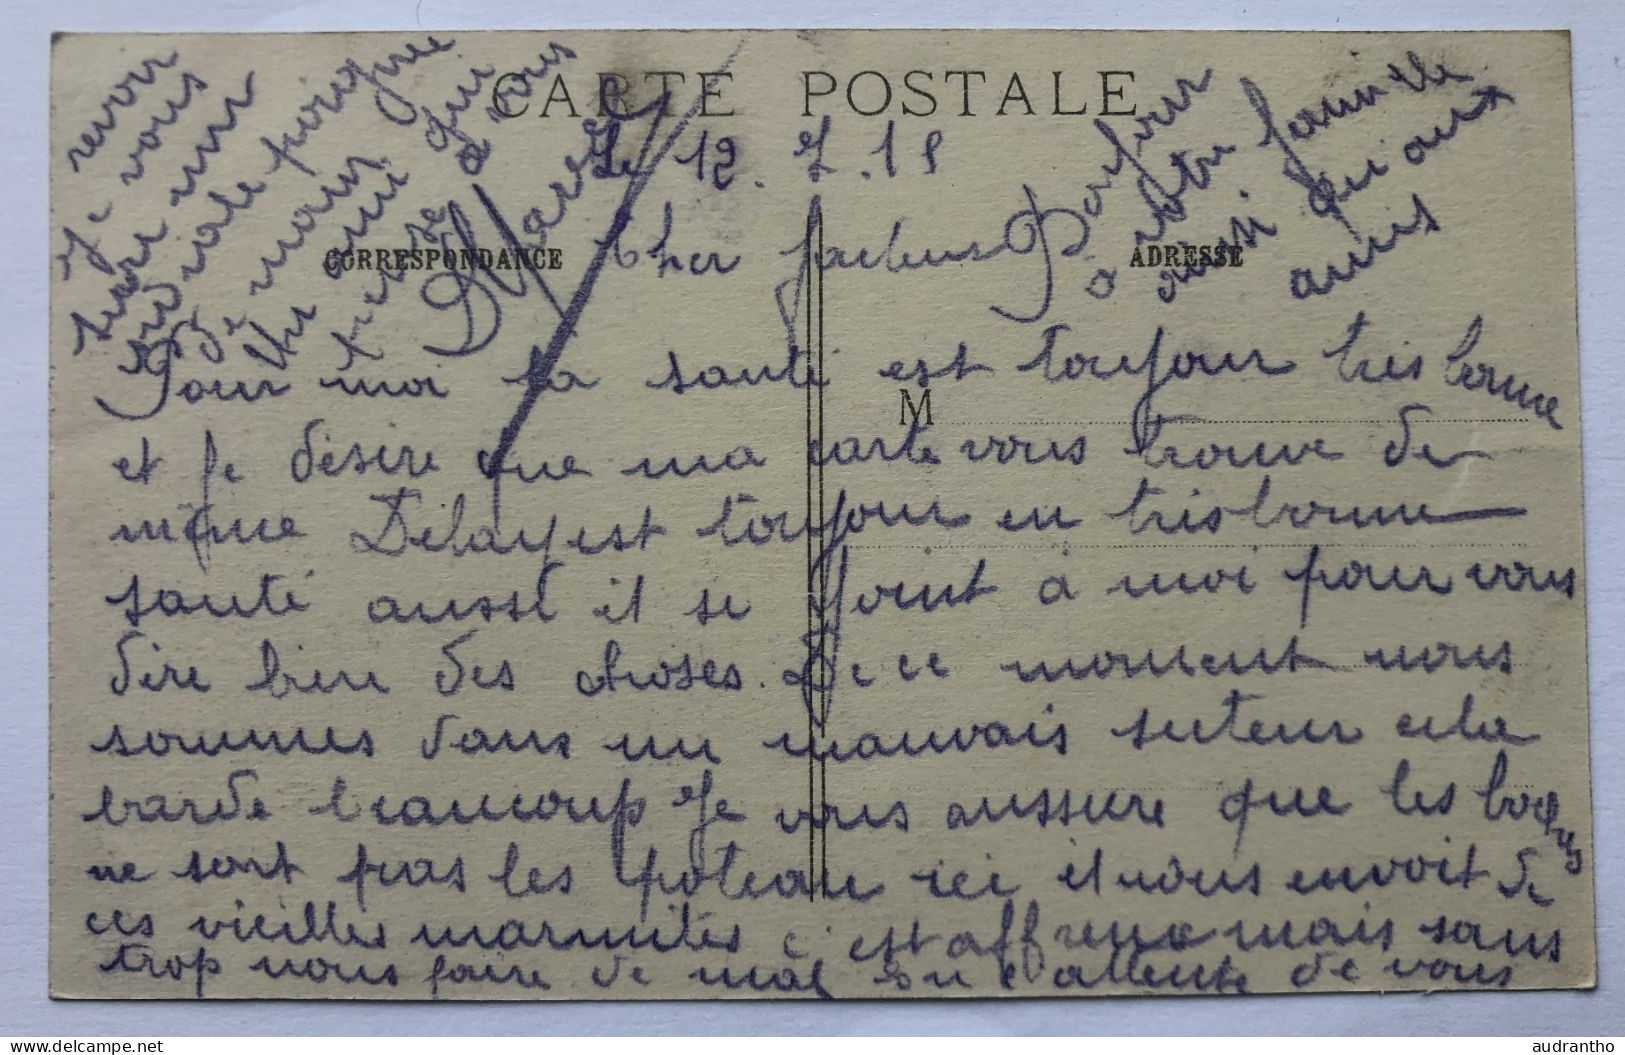 CARTE POSTALE
Le 12. 7. 15
CORRESPONDANCE
ADRESSE
Cher
Pour moi la santé est toujour tres bonne
M
et je désire que ma carte vous trouve de
même Delay est toujour en tres bonne
santé aussi il se joint à moi pour vous
dire bien des choses. De ce moment nous
sommes dans un mauvais secteur cela
barde beaucoup Je vous aussure que les boches
ne sont pas les poteau ici il nous envoit de
ces vieilles marmites c'est affreux mais sans
trop nous faire de mal En l'attente de vous
revoir
je vous
serre une
poigne
de main
Un ami qui
à vous
à votre famille
aussi qu'aux
amis
audrantho
delcampe.net